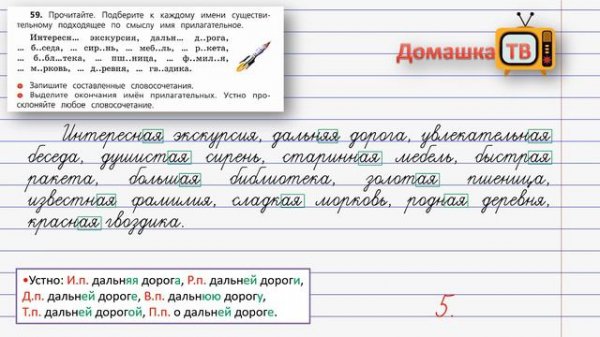 59. Прочитайте. Подберите к каждому имени существи-
тельному подходящее по смыслу имя прилагательное.
Интересн... экскурсия, дальн... д..рога,
... б..седа, ... сир..нь, ... меб..ль, ... р..кета,
... б..бл..тека, ... пш..ница, ... ф..мил..я,
... м..рковь, ... д..ревня, ... гв..здика.
Запишите составленные словосочетания.
Выделите окончания имён прилагательных. Устно про-
склоняйте любое словосочетание.
Домашка ТВ
Интересная экскурсия, дальняя дорога, увлекательная
беседа, душистая сирень, старинная мебель, быстрая
ракета, большая библиотека, золотая пшеница,
известная фамилия, сладкая морковь, родная деревня,
красная гвоздика.
•Устно: И.п. дальняя дорога, Р.п. дальней дороги,
Д.п. дальней дороге, В.п. дальнюю дорогу,
Т.п. дальней дорогой, П.п. о дальней дороге.
5.